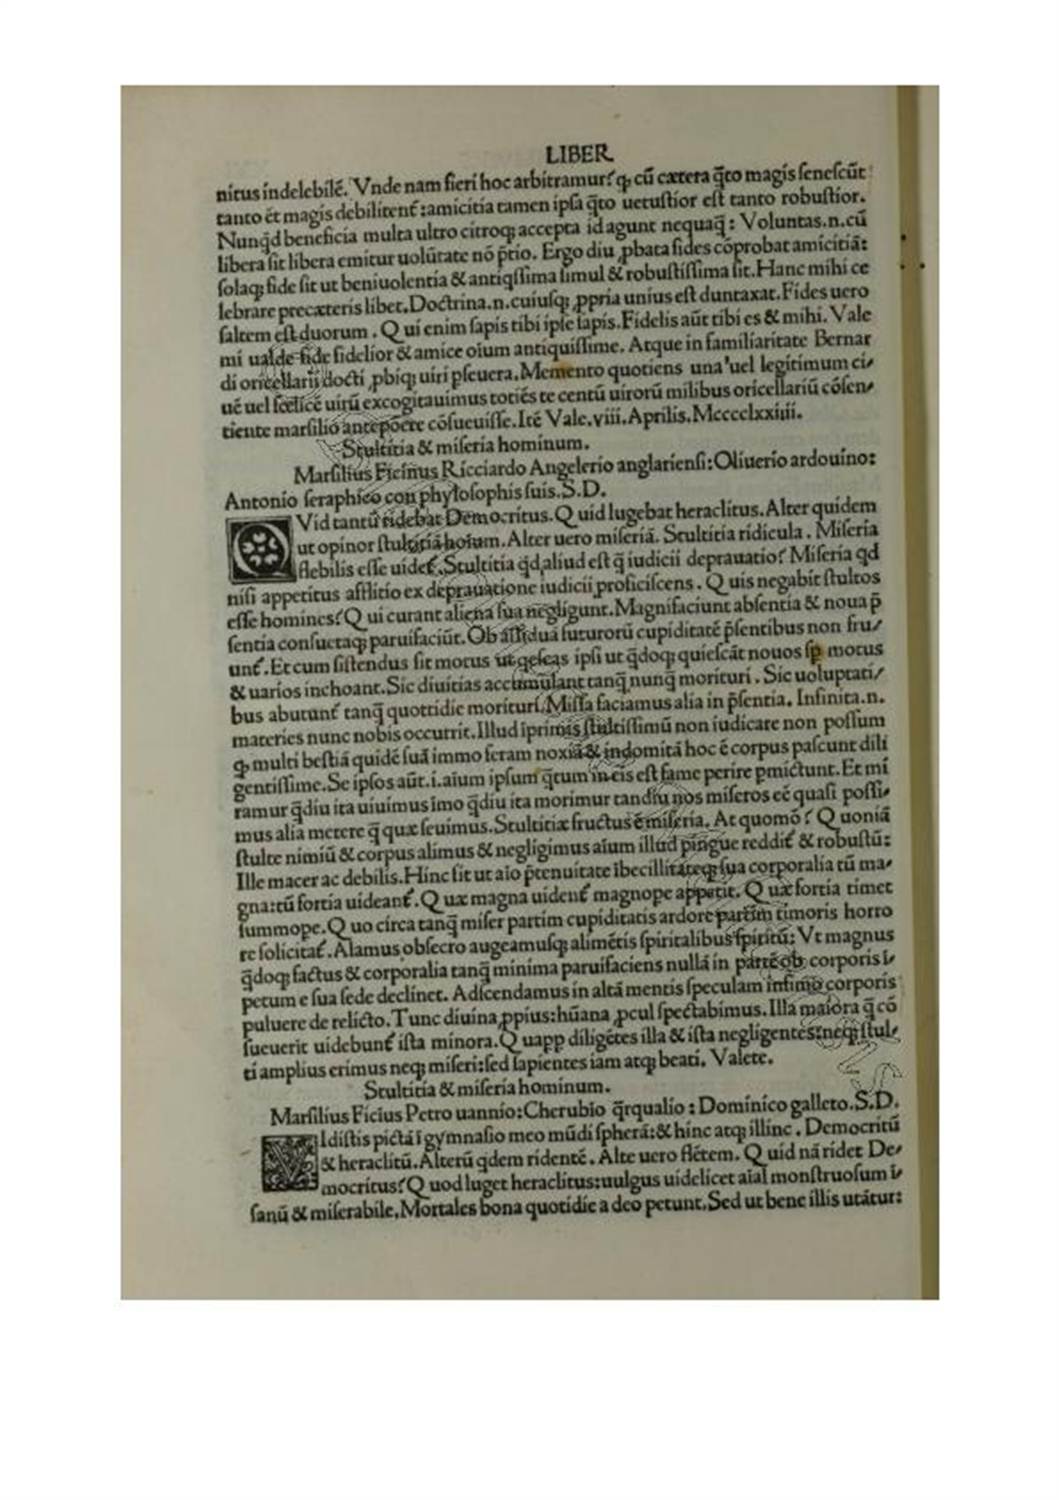 LIBER
nitus indelebilē. Vnde nam fieri hoc arbitramur? ꝙ cū cætera q̄to magis senescūt
tanto ēt magis debilitent̄: amicitia tamen ipsa q̄to uetustior est tanto robustior.
Nunqd beneficia multa ultro citroqꝫ accepta id agunt nequaq̄: Voluntas.n.cū
libera sit libera emitur uolūtate nō p̄tio. Ergo diu ꝓbata fides cōprobat amicitiā:
solaqꝫ fide sit ut beniuolentia & antiqssima simul & robustissima sit. Hanc mihi ce
lebrare precæteris libet. Doctrina.n.cuiusqꝫ ꝓpria unius est duntaxat. Fides uero
saltem est duorum. Qui enim sapis tibi ipse sapis. Fidelis aūt tibi es & mihi. Vale
mi ualde fide fidelior & amice oium antiquissime. Atque in familiaritate Bernar
di oricellarii docti ꝓbiqꝫ uiri pseuera. Memento quotiens una uel legitimum ci/
uē uel fœlicē uirū excogitauimus totiēs te centū uirorū milibus oricellariū cōsen/
tiente marsilio antepōere cōsueuisse. Itē Vale.viii.Aprilis.Mcccclxxiiii.
Stultitia & miseria hominum.
Marsilius Ficinus Ricciardo Angelerio anglariensi: Oliuerio ardouino:
Antonio seraphico conphylosophis suis.S.D.
QVid tantū ridebat Democritus. Quid lugebat heraclitus. Alter quidem
ut opinor stultitiā hoium. Alter uero miseriā. Stultitia ridicula. Miseria
flebilis esse uidet̄. Stultitia qd aliud est q̄ iudicii deprauatio? Miseria qd
nisi appetitus afflitio ex deprauatione iudicii proficiscens. Quis negabit stultos
esse homines? Qui curant aliena sua negligunt. Magnifaciunt absentia & noua p̄
sentia consuetaqꝫ paruifaciūt. Ob assiduā futurorū cupiditatē p̄sentibus non fru/
unt̄. Et cum sistendus sit motus ut qescas ipsi ut qdoqꝫ quiescāt nouos sp motus
& uarios inchoant. Sic diuitias accumulant tanq̄ nunq̄ morituri. Sic uoluptati/
bus abutunt̄ tanq̄ quottidie morituri. Missa faciamus alia in p̄sentia. Infinita.n.
materies nunc nobis occurrit. Illud īprimis stultissimū non iudicare non possum
ꝙ multi bestiā quidē suā immo feram noxiā & indomitā hoc ē corpus pascunt dili
gentissime. Se ipsos aūt.i.aium ipsum q̄tum in eis est fame perire pmictunt. Et mi
ramur q̄diu ita uiuimus imo q̄diu ita morimur tandiu nos miseros eē quasi possi/
mus alia metere q̄ quæ seuimus. Stultitiæ fructus ē miseria. At quomō? Quoniā
stulte nimiū & corpus alimus & negligimus aium illud pingue reddit̄ & robustū:
Ille macer ac debilis. Hinc fit ut aio p̄tenuitate ībecillitateqꝫ sua corporalia tū ma/
gna: tū fortia uideant̄. Quæ magna uident̄ magnope appetit. Quæ fortia timet
summope. Quo circa tanq̄ miser partim cupiditatis ardore partim timoris horro
re solicitat̄. Alamus obsecro augeamusqꝫ alimētis spiritalibus spiritū: Vt magnus
qdoqꝫ factus & corporalia tanq̄ minima paruifaciens nullā in partē ob corporis ī/
petum e sua sede declinet. Adscendamus in altā mentis speculam infimo corporis
puluere de relicto. Tunc diuina ꝓpius: hūana ꝓcul spectabimus. Illa maiora q̄ cō
sueuerit uidebunt̄ ista minora. Quapp diligētes illa & ista negligentes: neqꝫ stul/
ti amplius erimus neqꝫ miseri: sed sapientes iam atqꝫ beati. Valete.
Stultitia & miseria hominum.
Marsilius Ficius Petro uannio: Cherubio q̄rqualio: Dominico galleto.S.D.
VIdistis pictā ī gymnasio meo mūdi spherā: & hinc atqꝫ illinc. Democritū
& heraclitū. Alterū qdem ridentē. Alte uero flētem. Quid nā ridet De/
mocritus? Quod luget heraclitus: uulgus uidelicet aial monstruosum ī/
sanū & miserabile. Mortales bona quotidie a deo petunt. Sed ut bene illis utātur: